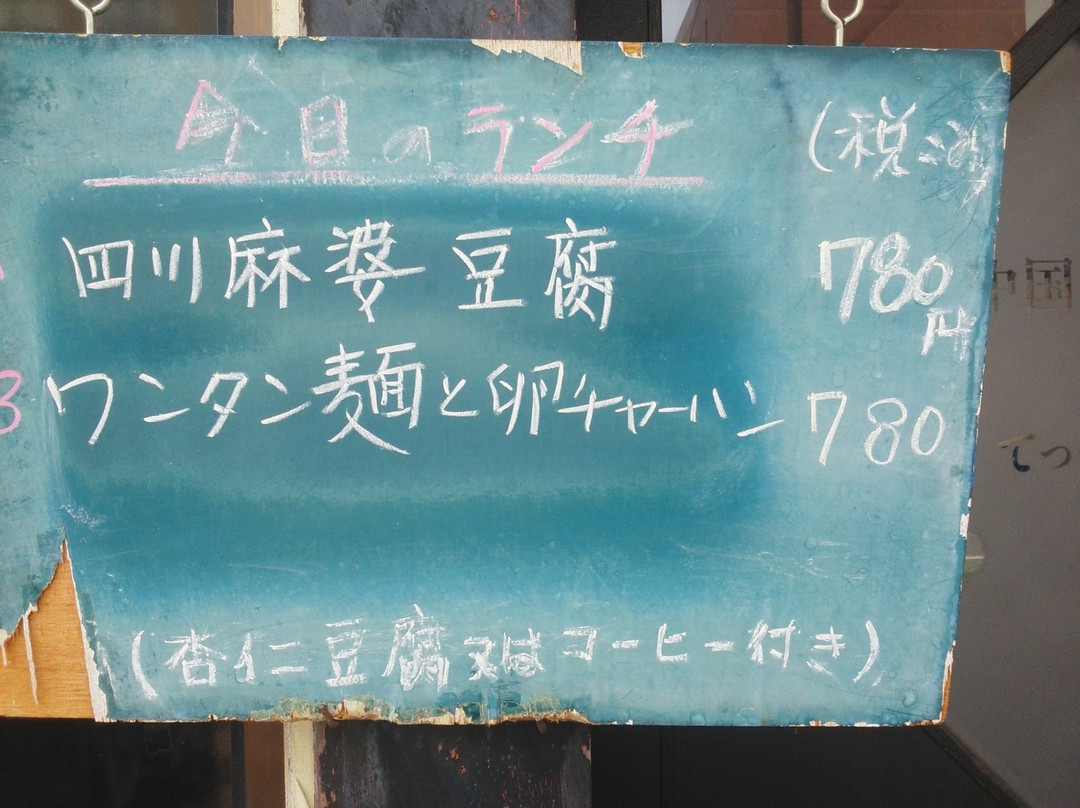 今日のランチ (税込
四川麻婆豆腐 780円
ワンタン麺と卵チャーハン 780
(杏仁豆腐又はコーヒー付き)
3
てつ